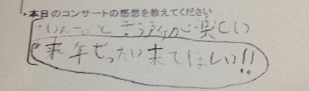 ・本日のコンサートの感想を教えてください
と言う所が楽しい
来年ぜったい来てほしい!!